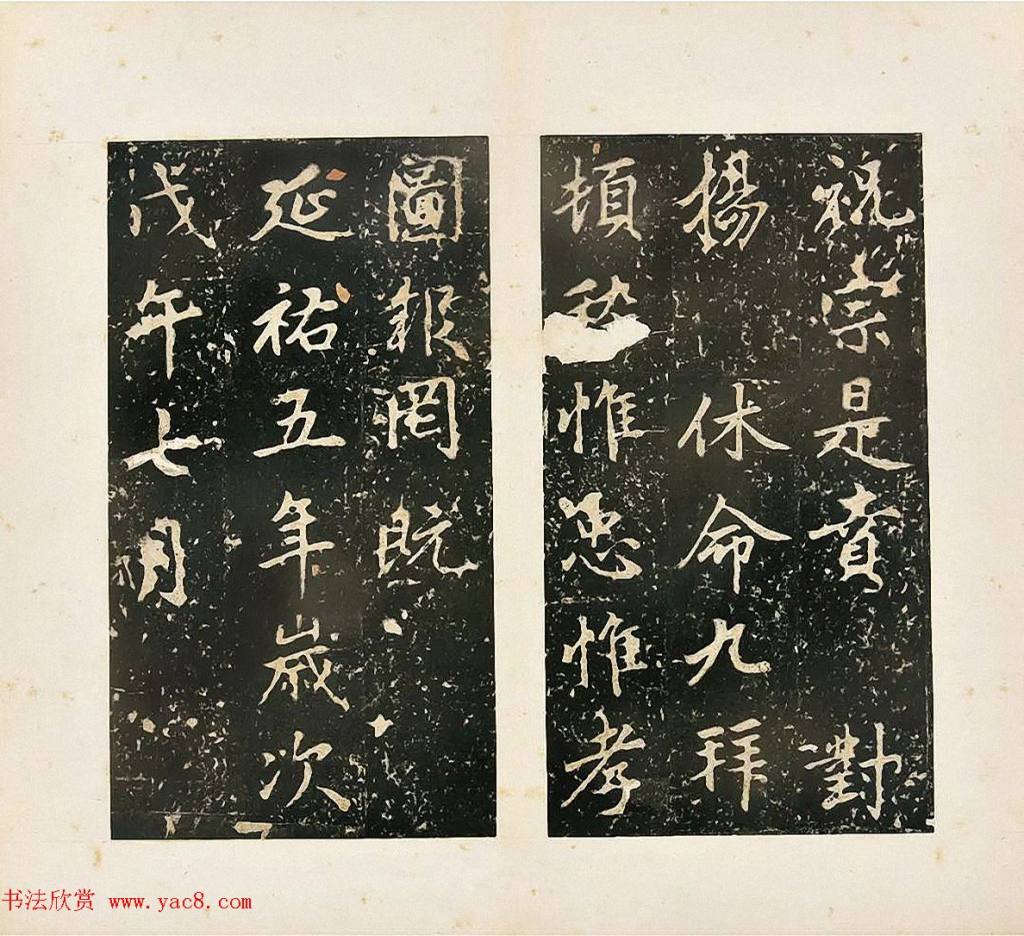 祝崇是賁對
揚休命九拜
頓惟忠惟孝
圖報罔既
延祐五年歲次
戊午七月
书法欣赏 www.yac8.com